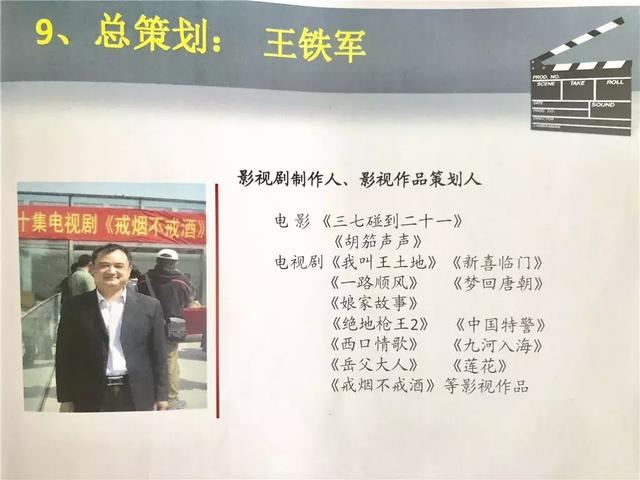 9、总策划： 王铁军
PROD. NO.
SCENE TAKE ROLL
DATE SOUND
PROD. CO.
DIRECTOR
CAMERAMAN
影视剧制作人、影视作品策划人
十集电视剧《戒烟不戒酒》
电 影《三七碰到二十一》
《胡笳声声》
电视剧《我叫王土地》《新喜临门》
《一路顺风》 《梦回唐朝》
《娘家故事》
《绝地枪王2》 《中国特警》
《西口情歌》 《九河入海》
《岳父大人》 《莲花》
《戒烟不戒酒》等影视作品